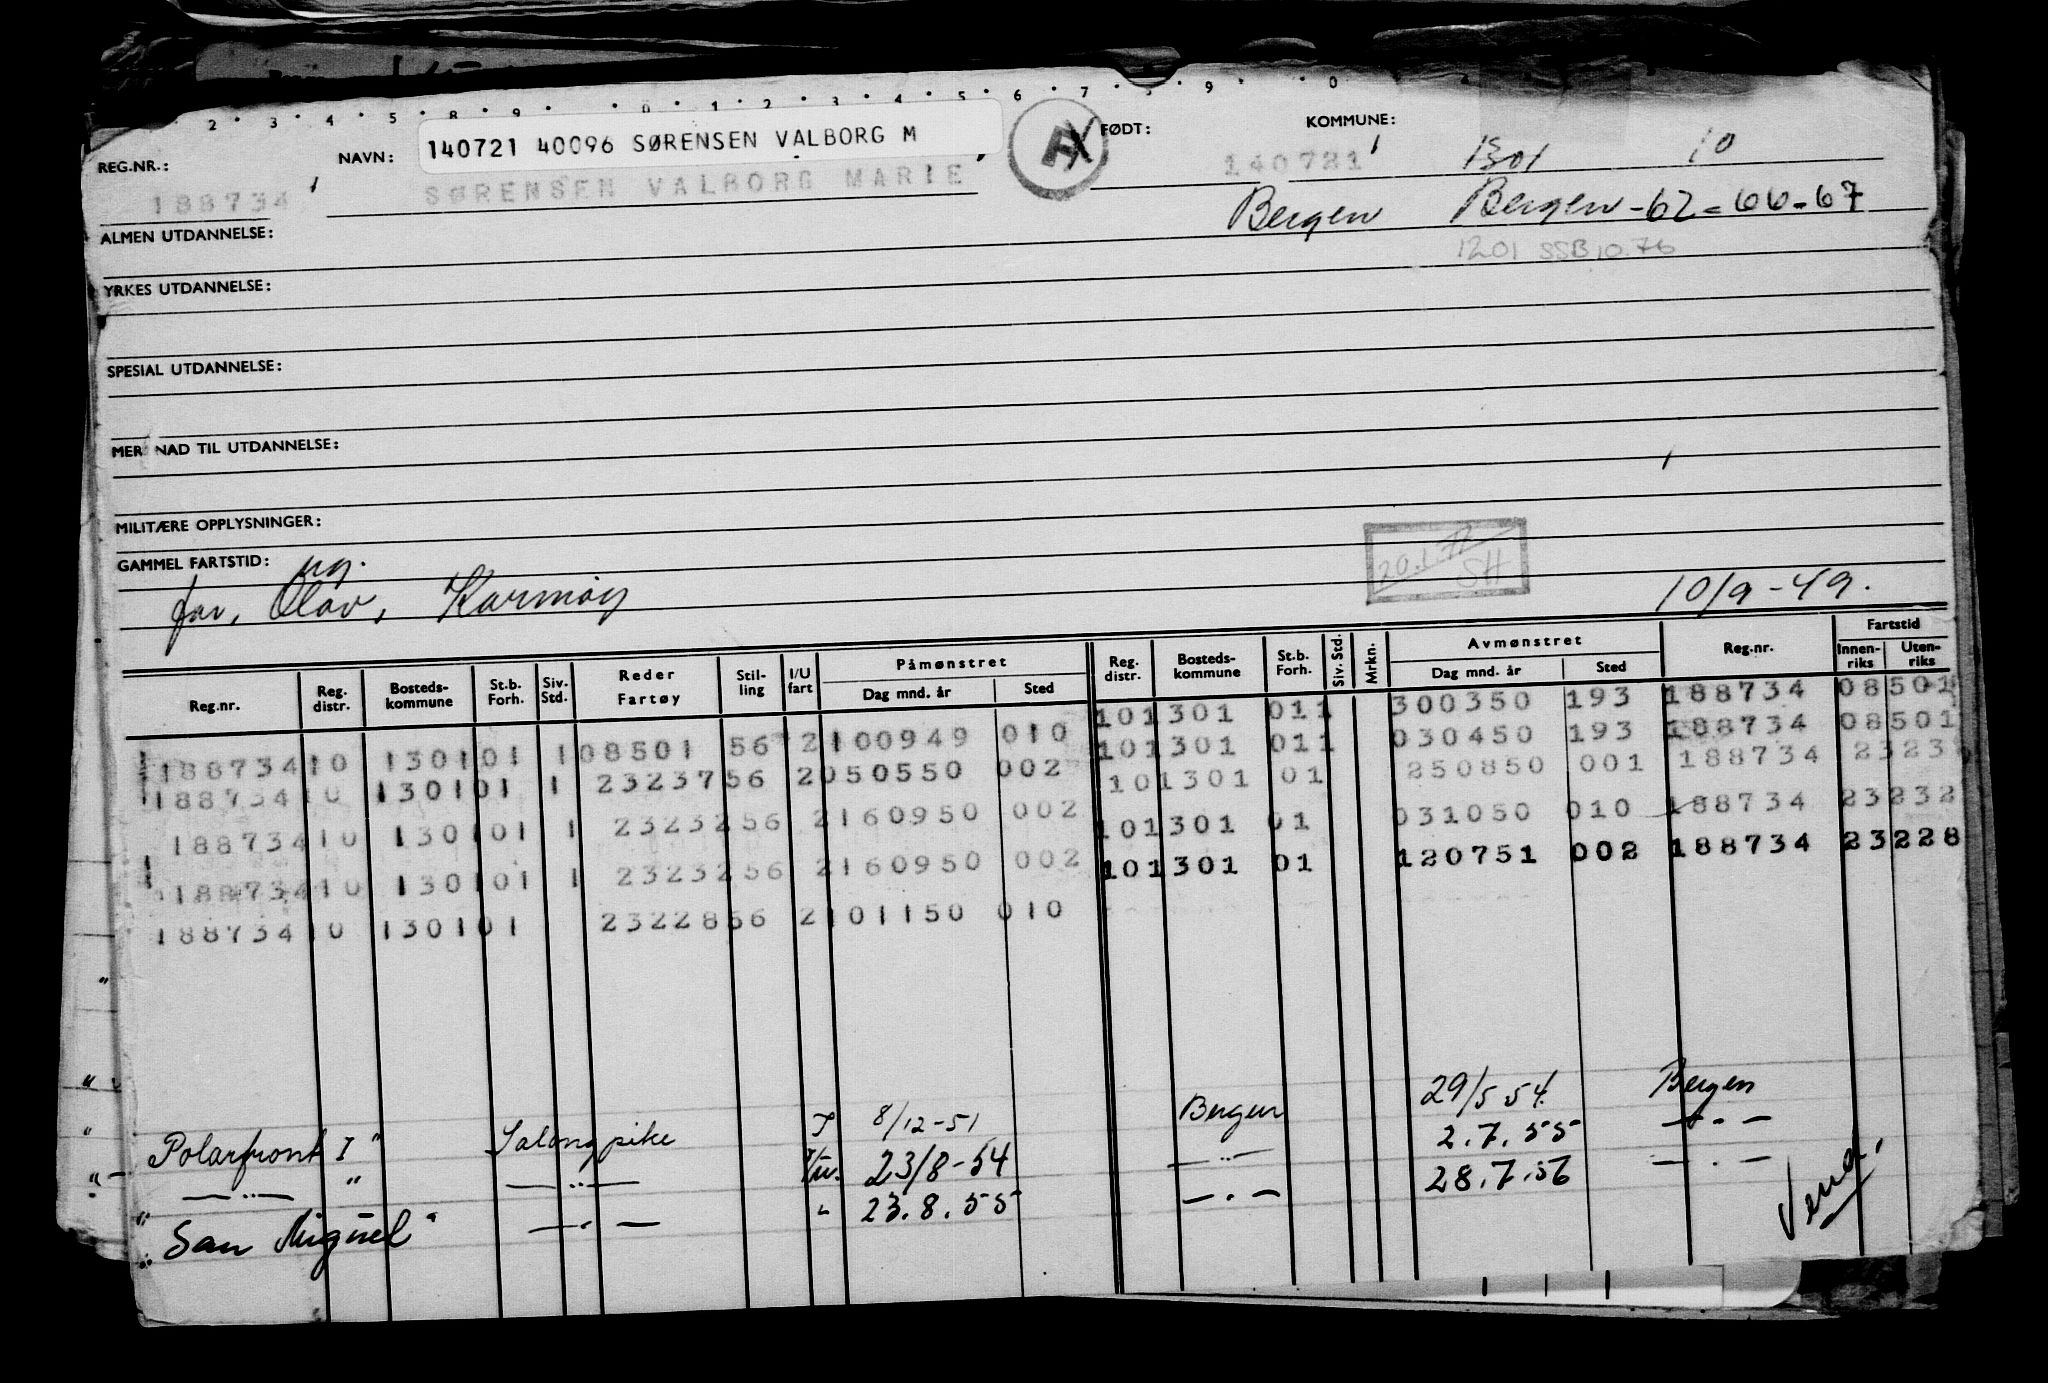 2 · 3 · 4 · 5 · 8 · 9 · 0 · 1 · 2 · 3 · 4 · 5 · 6 · 7 · 8 · 9 · 0
REG.NR.: NAVN: 140721 40096 SØRENSEN VALBORG M FØDT: KOMMUNE:
188734 SØRENSEN VALBORG MARIE 140721 1301 10
Bergen Bergen-62-66-67
ALMEN UTDANNELSE: 1201 SSB 10.76
YRKES UTDANNELSE:
SPESIAL UTDANNELSE:
MERKNAD TIL UTDANNELSE:
MILITÆRE OPPLYSNINGER:
GAMMEL FARTSTID: ug. 20.1.72 SH
far, Olav, Karmøy 10/9-49.
Reg.nr. Reg. distr. Bosteds- kommune St.b. Forh. Siv. Std. Reder Fartøy Stil- ling I/U fart Påmønstret Dag mnd. år Sted Reg. distr. Bosteds- kommune St.b. Forh. Siv. Std. Mrkn. Avmønstret Dag mnd. år Sted Reg.nr. Fartstid Innen- riks Uten- riks
188734 10 1301 01 1 08501 56 2 100949 010 10 1301 011 300350 193 188734 08501
188734 10 1301 01 1 23237 56 2 050550 002 10 1301 011 030450 193 188734 08501
188734 10 1301 01 1 23232 56 2 160950 002 10 1301 01 250850 001 188734 2323
188734 10 1301 01 1 23232 56 2 160950 002 10 1301 01 031050 010 188734 23232
188734 10 1301 01 23228 56 2 101150 010 10 1301 01 120751 002 188734 23228
"Polarfront I" Salongpike I 8/12-51 Bergen 29/5 54. Bergen
— " — " — " — 23/8-54 — " — 2.7.55 — " —
"San Miguel" — " — " 23.8.55 — " — 28.7.56 — " —